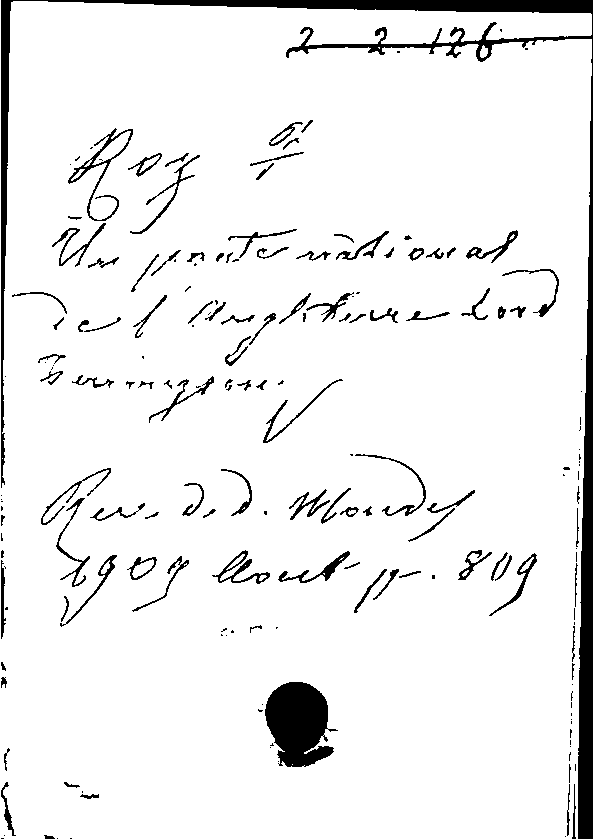 2 2 126
Roy
Un poete national
de l'Angleterre Lord
Tennyson.
Rev. d. d. Mondes
1907 Aout p. 809